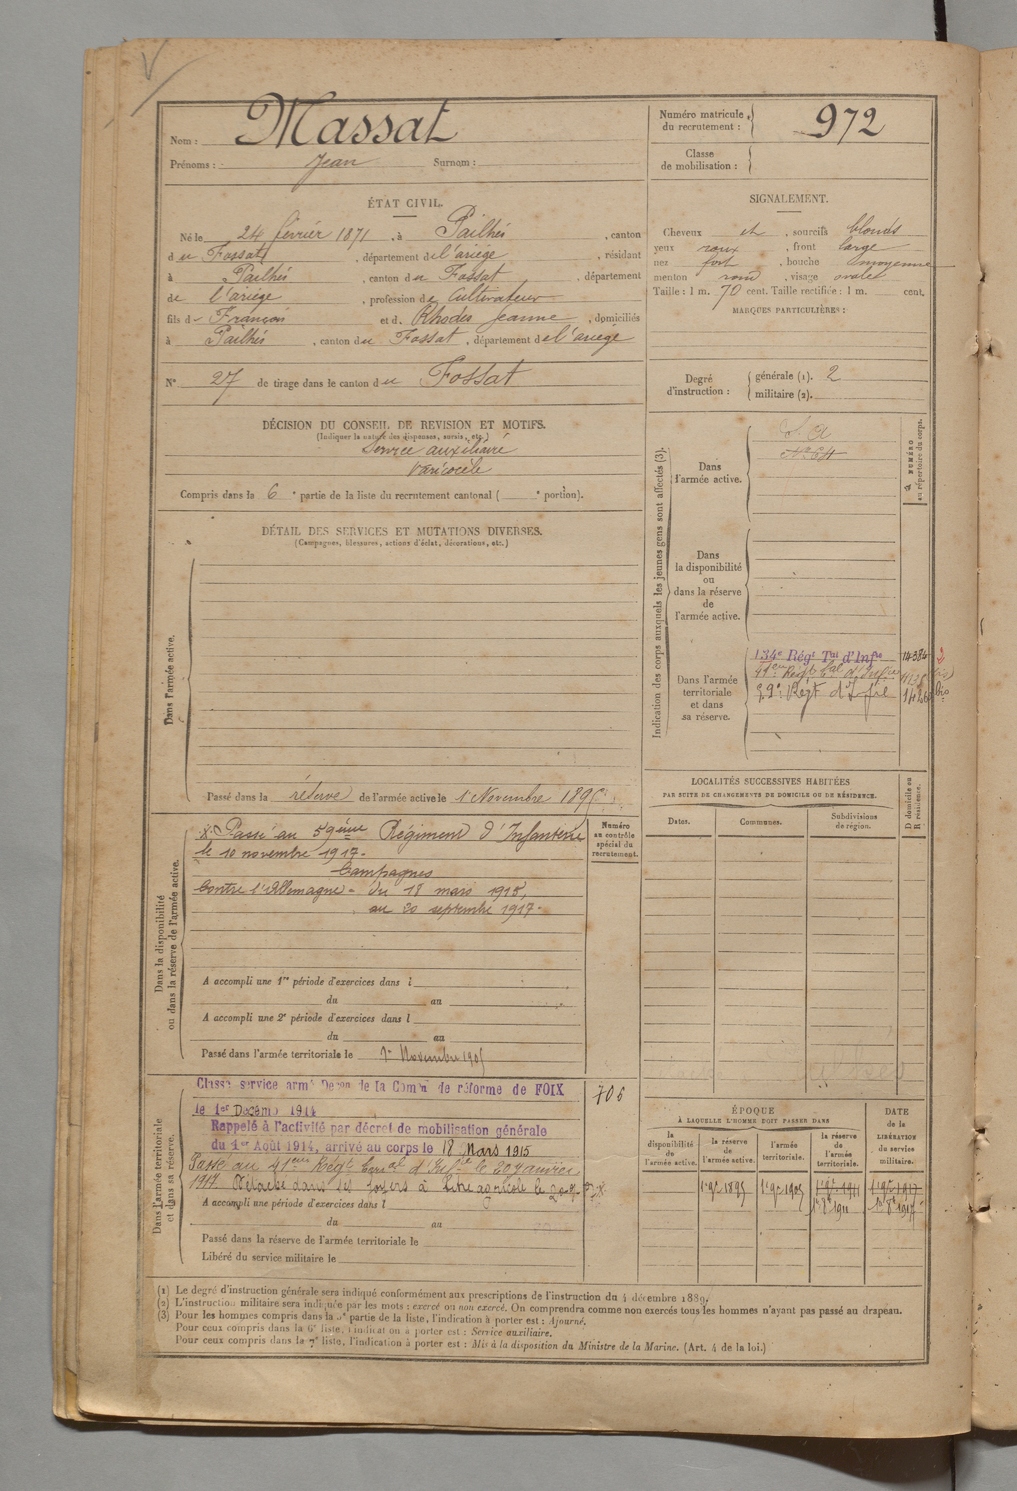 Nom : Massat
Prénoms : Jean Surnom :
Numéro matricule du recrutement : 972
Classe de mobilisation :
ÉTAT CIVIL.
Né le 24 février 1871, à Pailhés, canton
du Fossat, département de l'ariége, résidant
à Pailhés, canton du Fossat, département
de l'ariége, profession de Cultivateur
fils de François et d. Rhodes Jeanne, domiciliés
à Pailhés, canton du Fossat, département de l'ariége
N° 27 de tirage dans le canton du Fossat
SIGNALEMENT.
Cheveux et, sourcils blonds
yeux roux, front large
nez fort, bouche moyenne
menton rond, visage ovale
Taille : 1 m. 70 cent. Taille rectifiée : 1 m. cent.
MARQUES PARTICULIÈRES :
Degré d'instruction : générale (1). 2
militaire (2).
DÉCISION DU CONSEIL DE REVISION ET MOTIFS.
(Indiquer la nature des dispenses, sursis, etc.)
Service auxiliaire
Varicocèle
Compris dans la 6e partie de la liste du recrutement cantonal ( e portion).
DÉTAIL DES SERVICES ET MUTATIONS DIVERSES.
(Campagnes, blessures, actions d'éclat, décorations, etc.)
Dans l'armée active.
Passé dans la réserve de l'armée active le 1 Novembre 189
Indication des corps auxquels les jeunes gens sont affectés (3).
NUMÉRO au répertoire du corps.
Dans l'armée active.
S. A
N° 64
Dans la disponibilité ou dans la réserve de l'armée active.
Dans l'armée territoriale et dans sa réserve.
134e Régt Tal d'Infie
14384
LOCALITÉS SUCCESSIVES HABITÉES
PAR SUITE DE CHANGEMENTS DE DOMICILE OU DE RÉSIDENCE.
Dates. Communes. Subdivisions de région. D domicile ou R résidence.
Dans la disponibilité ou dans la réserve de l'armée active.
Numéro au contrôle spécial du recrutement.
Passé au 59ème Régiment d'Infanterie
le 10 novembre 1917.
Campagnes
Contre l'Allemagne - du 18 mars 1915,
au 20 septembre 1917 -
A accompli une 1re période d'exercices dans l
du au
A accompli une 2e période d'exercices dans l
du au
Passé dans l'armée territoriale le 1er Novembre 1905
Dans l'armée territoriale et dans sa réserve.
Classé service armé de la Comon de réforme de FOIX
706
le 1er Decemb 1914
Rappelé à l'activité par décret de mobilisation générale
du 1er Août 1914, arrivé au corps le 18 Mars 1915
Passé au 41eme Régt d'Infie le 20 janvier
1917. Détaché dans ses foyers à titre agricole le
A accompli une période d'exercices dans l
du au
Passé dans la réserve de l'armée territoriale le
Libéré du service militaire le
ÉPOQUE
À LAQUELLE L'HOMME DOIT PASSER DANS
DATE DE LA LIBÉRATION du service militaire.
la disponibilité de l'armée active. la réserve de l'armée active. l'armée territoriale. la réserve de l'armée territoriale.
1er 9e 1895 1er 9e 1905 1er 9e 1911 1er 9e 1917
1er 8e 1911 1er 8e 1917
(1) Le degré d'instruction générale sera indiqué conformément aux prescriptions de l'instruction du 4 décembre 1889.
(2) L'instruction militaire sera indiquée par les mots : exercé ou non exercé. On comprendra comme non exercés tous les hommes n'ayant pas passé au drapeau.
(3) Pour les hommes compris dans la 5e partie de la liste, l'indication à porter est : Ajourné.
Pour ceux compris dans la 6e liste, l'indication à porter est : Service auxiliaire.
Pour ceux compris dans la 7e liste, l'indication à porter est : Mis à la disposition du Ministre de la Marine. (Art. 4 de la loi.)